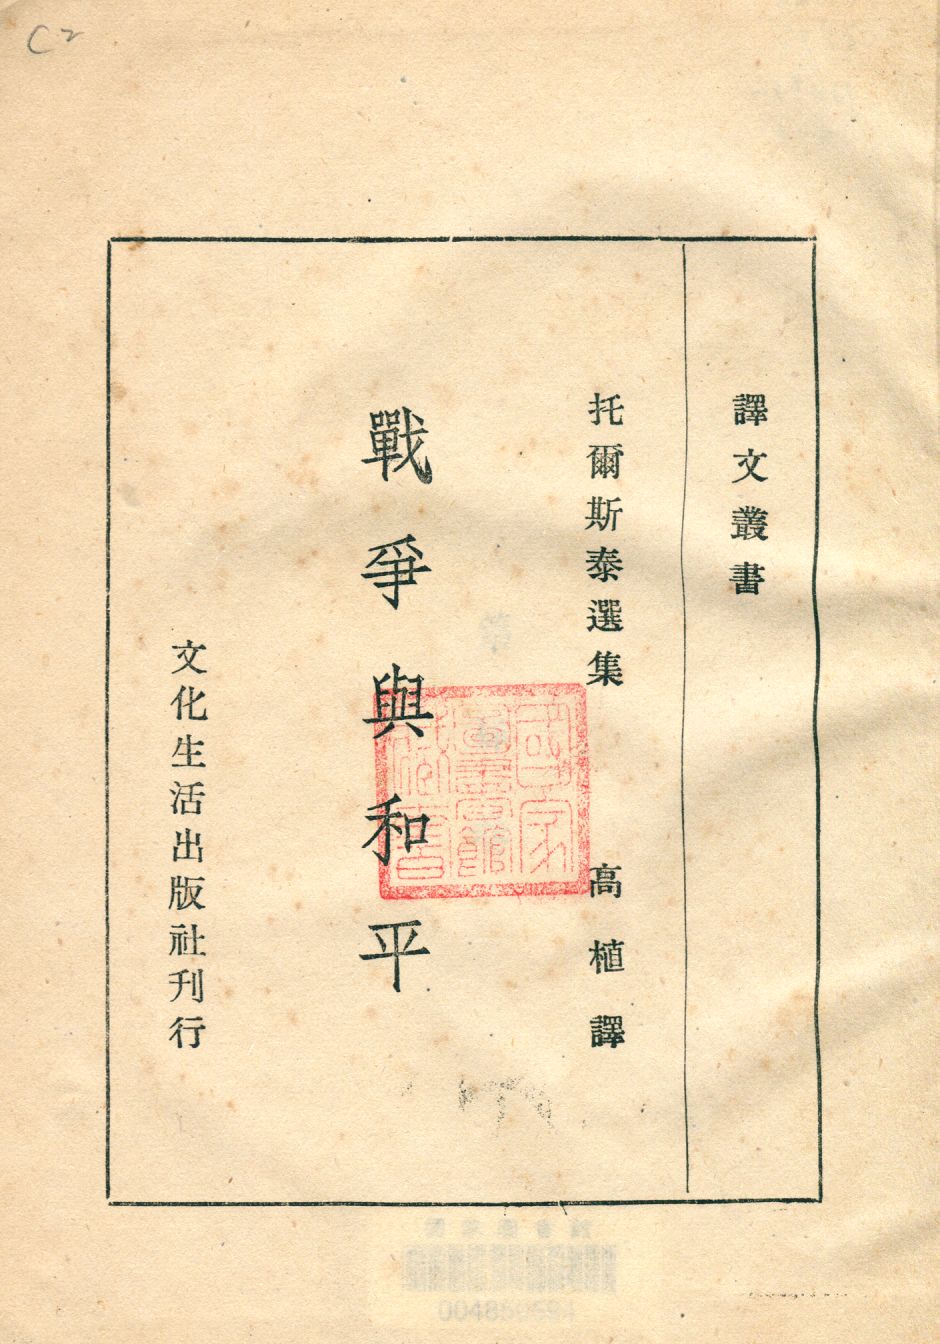 C2
譯文叢書
托爾斯泰選集
高植譯
戰爭與和平
文化生活出版社刊行
國家
圖書館
藏書